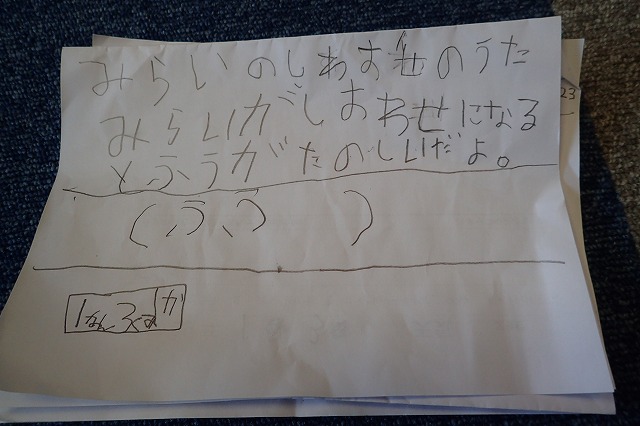 みらいのしわおせのうた
みらいがしおわせになる
とふうがたのしいだよ。
(ふうふう)
1ねん3くみ か
23